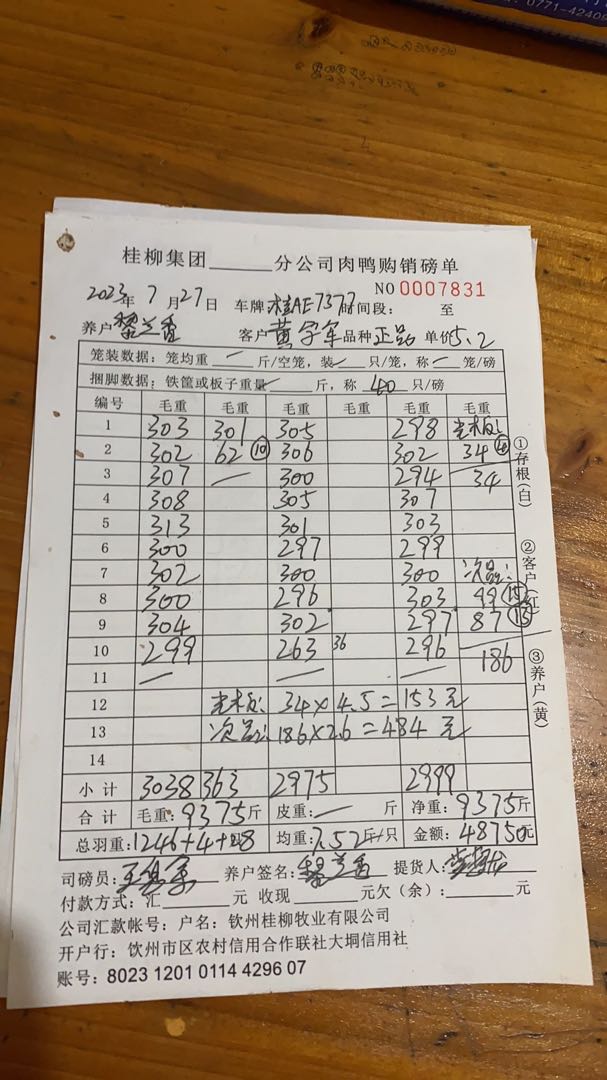 桂柳集团______分公司肉鸭购销磅单
NO 0007831
2023年 7月27日 车牌 桂AE7377 时间段: 至
养户 黎兰香 客户 黄字军 品种 正品 单价5.2
笼装数据: 笼均重 — 斤/空笼, 装 — 只/笼, 称 — 笼/磅
捆脚数据: 铁筐或板子重量 — 斤, 称 40 只/磅
编号 毛重 毛重 毛重 毛重 毛重 毛重
1 303 301 305 298
2 302 62 ⑩ 306 302 34
3 307 — 300 294 34
4 308 305 307
5 313 301 303
6 300 297 299
7 302 300 300 次品:
8 300 296 303 99 ⑮
9 304 302 297 87 ⑬
10 299 263 36 296 186
11 — — —
12 34×4.5=153元
13 次品: 186×2.6=484元
14
小计 3038 363 2975 2999
合计 毛重: 9375斤 皮重: — 斤 净重: 9375斤
总羽重: 1246+4+28 均重: 7.52斤/只 金额: 48750元
①存根(白)
②客户(红)
③养户(黄)
司磅员: 养户签名: 黎兰香 提货人:
付款方式: 汇______元 收现______元欠(余):______元
公司汇款帐号: 户名: 钦州桂柳牧业有限公司
开户行: 钦州市区农村信用合作联社大垌信用社
账号: 8023 1201 0114 4296 07